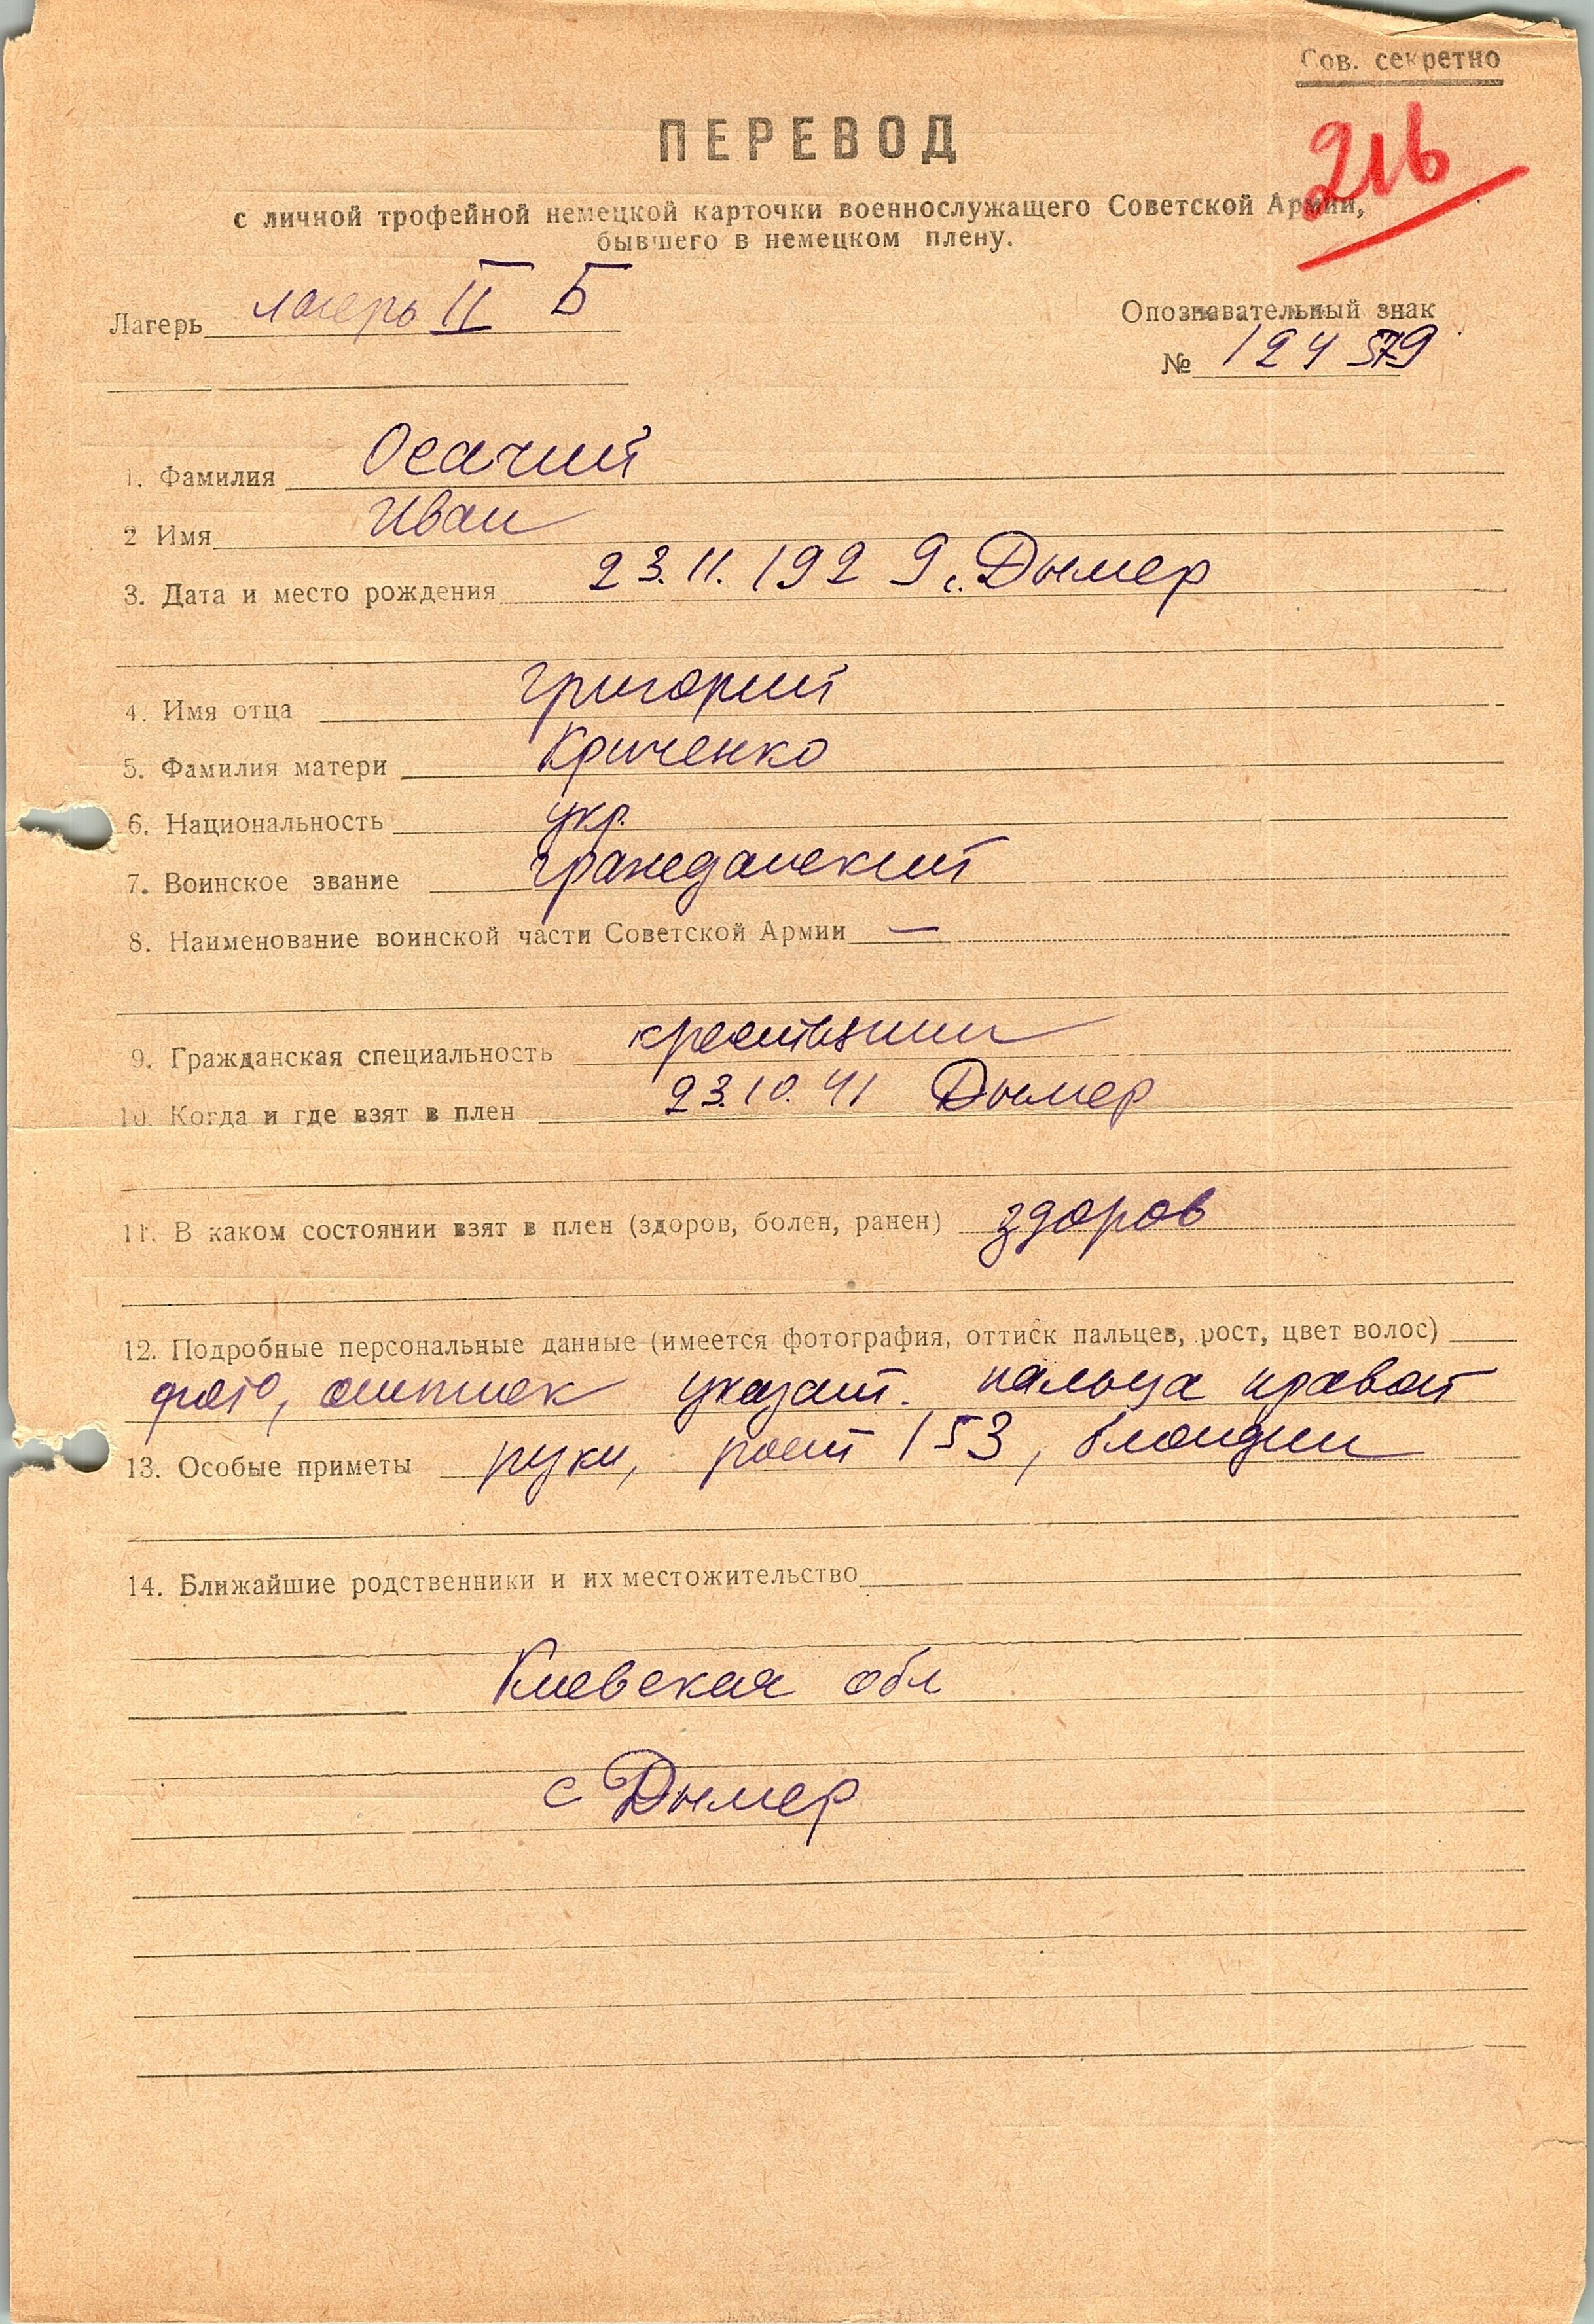 Сов. секретно
216
ПЕРЕВОД
с личной трофейной немецкой карточки военнослужащего Советской Армии,
бывшего в немецком плену.
Лагерь лагерь II Б
Опознавательный знак
№ 124579
1. Фамилия Осачий
2 Имя Иван
3. Дата и место рождения 23.11.1929 с. Дымер
4. Имя отца Григорий
5. Фамилия матери Криченко
6. Национальность укр.
7. Воинское звание гражданский
8. Наименование воинской части Советской Армии —
9. Гражданская специальность крестьянин
10. Когда и где взят в плен 23.10.41 Дымер
11. В каком состоянии взят в плен (здоров, болен, ранен) здоров
12. Подробные персональные данные (имеется фотография, оттиск пальцев, рост, цвет волос)
фото, оттиск указат. пальца правой
13. Особые приметы руки, рост 153, блондин
14. Ближайшие родственники и их местожительство
Киевская обл
с Дымер